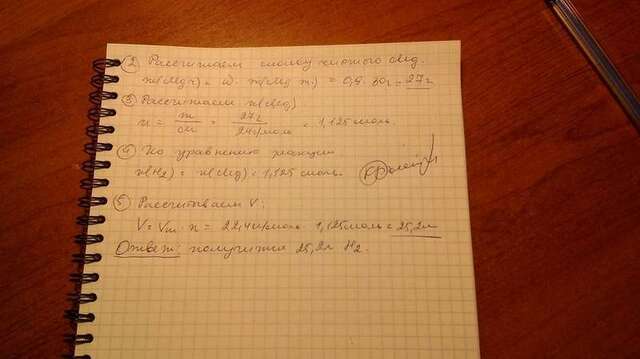 ② Рассчитаем массу чистого Mg.
m(Mg ч) = ω · m(Mg т.) = 0,9 · 30г = 27г
③ Рассчитаем n(Mg)
n = m/M = 27г/24г/моль = 1,125моль.
④ По уравнению реакции
n(H₂) = n(Mg) = 1,125 моль.
⑤ Рассчитываем V:
V = Vm · n = 22,4л/моль · 1,125моль = 25,2л
Ответ: получится 25,2л H₂.